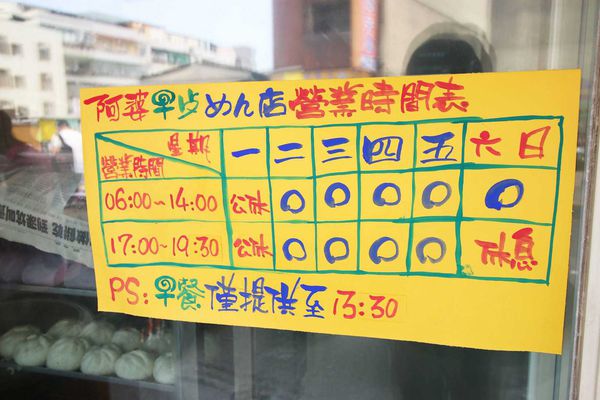 阿婆早点めん店營業時間表
星期 一 二 三 四 五 六 日
營業時間
06:00~14:00 公休 ○ ○ ○ ○ ○
17:00~19:30 公休 ○ ○ ○ ○ 休息
PS: 早餐僅提供至13:30